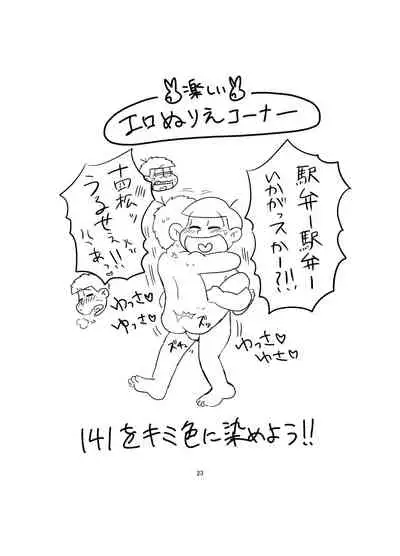 楽しい
エロぬりえコーナー
駅弁ー駅弁ー
いかがっスかー?!!
十四松ッ
うるせぇ
あっ!!
ゆっさ♡
ゆっさ♡
ズッ
ゆっさ♡
ゆさ♡
141をキミ色に染めよう!!
23